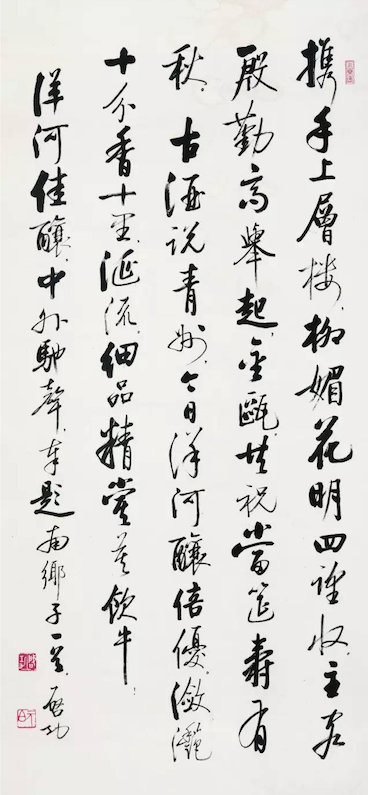 携手上層楼柳媚花明四望收主客
殷勤高舉起金甌共祝當筵壽有
秋古酒説青州今日洋河釀倍優潋灧
十分香十里滙流細品精嘗莫飲牛
洋河佳釀中外馳聲奉題南鄉子一首啟功